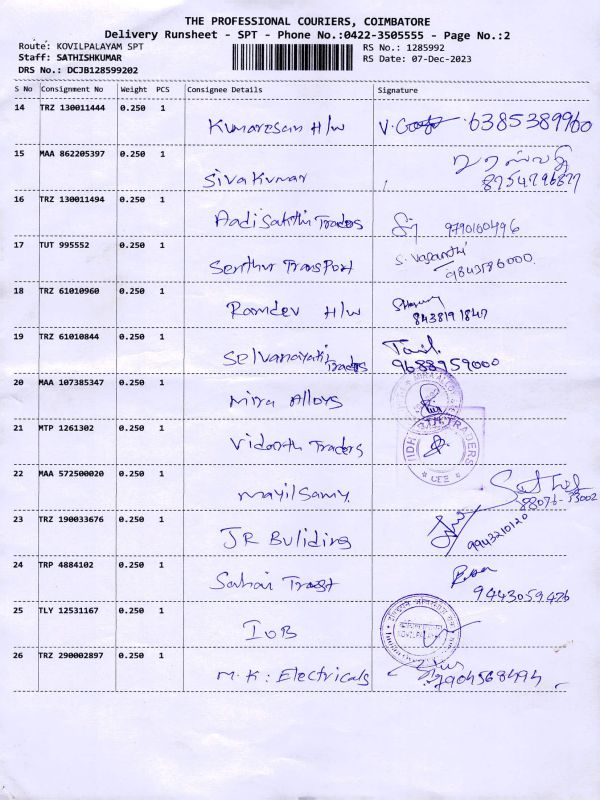 THE PROFESSIONAL COURIERS, COIMBATORE
Delivery Runsheet - SPT - Phone No.:0422-3505555 - Page No.:2
Route: KOVILPALAYAM SPT RS No.: 1285992
Staff: SATHISHKUMAR RS Date: 07-Dec-2023
DRS No.: DCJB128599202
S No Consignment No Weight PCS Consignee Details Signature
14 TRZ 130011444 0.250 1
Kumaresan H/w 6385389960
15 MAA 862205397 0.250 1
Sivakumar 8754796877
16 TRZ 130011494 0.250 1
Aadi Sakthi Traders 9790160496
17 TUT 995552 0.250 1
Senthur Transport S. Vasanthi
9843586000
18 TRZ 61010960 0.250 1
Ramdev H/w 8438191847
19 TRZ 61010844 0.250 1
Selvanayaki Traders 9688959000
20 MAA 107385347 0.250 1
Alloys
21 MTP 1261302 0.250 1
Traders
TRADERS
CBE
22 MAA 572500020 0.250 1
Mayilsamy 88076-53002
23 TRZ 190033676 0.250 1
JR Buliding 9943210120
24 TRP 4884102 0.250 1
9443059426
25 TLY 12531167 0.250 1
IOB
26 TRZ 290002897 0.250 1
M.K: Electricals 7904568494